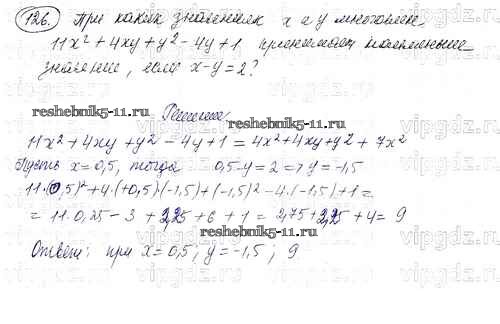 126. При каких значениях x и y многочлен
11x² + 4xy + y² - 4y + 1 принимает наименьшее
значение, если x - y = 2?
Решение:
reshebnik5-11.ru
11x² + 4xy + y² - 4y + 1 = 4x² + 4xy + y² + 7x²
Пусть x = 0,5, тогда 0,5 - y = 2 => y = -1,5
11·(0,5)² + 4·(+0,5)·(-1,5) + (-1,5)² - 4·(-1,5) + 1 =
= 11·0,25 - 3 + 2,25 + 6 + 1 = 2,75 + 2,25 + 4 = 9
reshebnik5-11.ru
Ответ: при x = 0,5; y = -1,5; 9